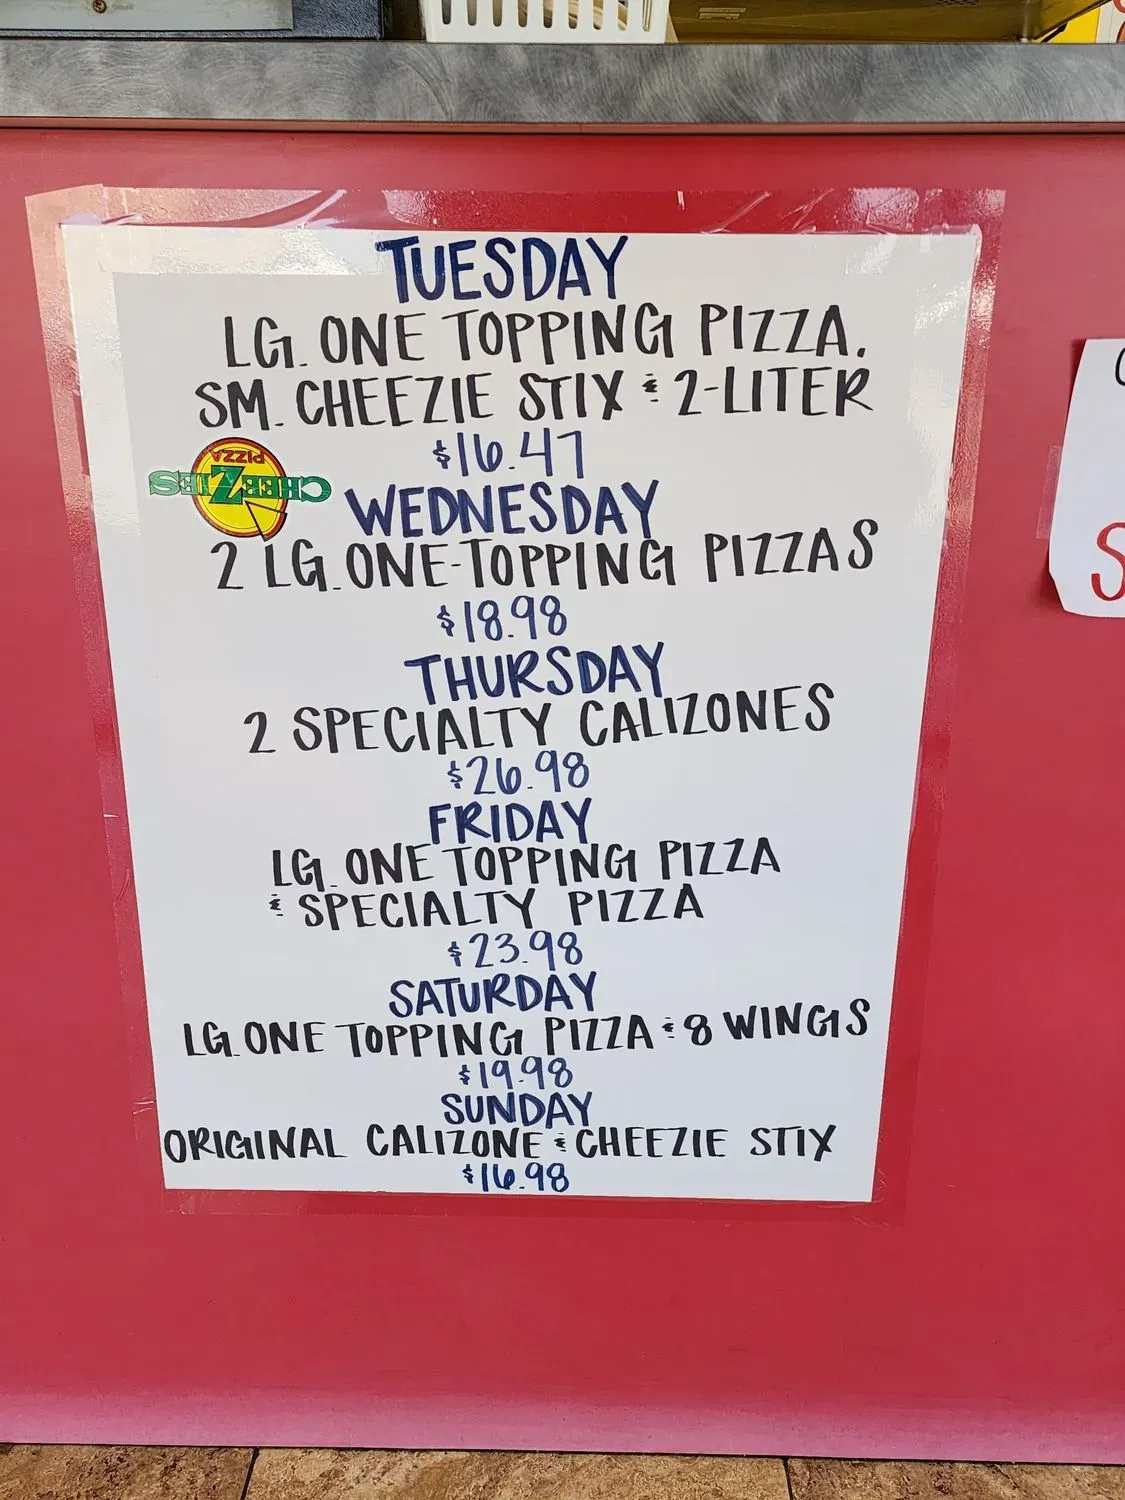 TUESDAY
LG. ONE TOPPING PIZZA.
SM. CHEEZIE STIX & 2-LITER
$16.47
CHEEZIES
PIZZA
WEDNESDAY
2 LG. ONE-TOPPING PIZZAS
$18.98
THURSDAY
2 SPECIALTY CALIZONES
$26.98
FRIDAY
LG. ONE TOPPING PIZZA
& SPECIALTY PIZZA
$23.98
SATURDAY
LG. ONE TOPPING PIZZA & 8 WINGS
$19.98
SUNDAY
ORIGINAL CALIZONE & CHEEZIE STIX
$16.98